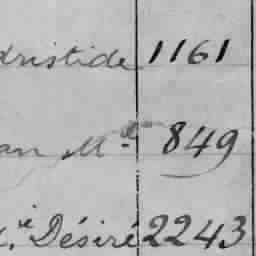 Aristide 1161
an Md 849
x.ie Désiré 2243